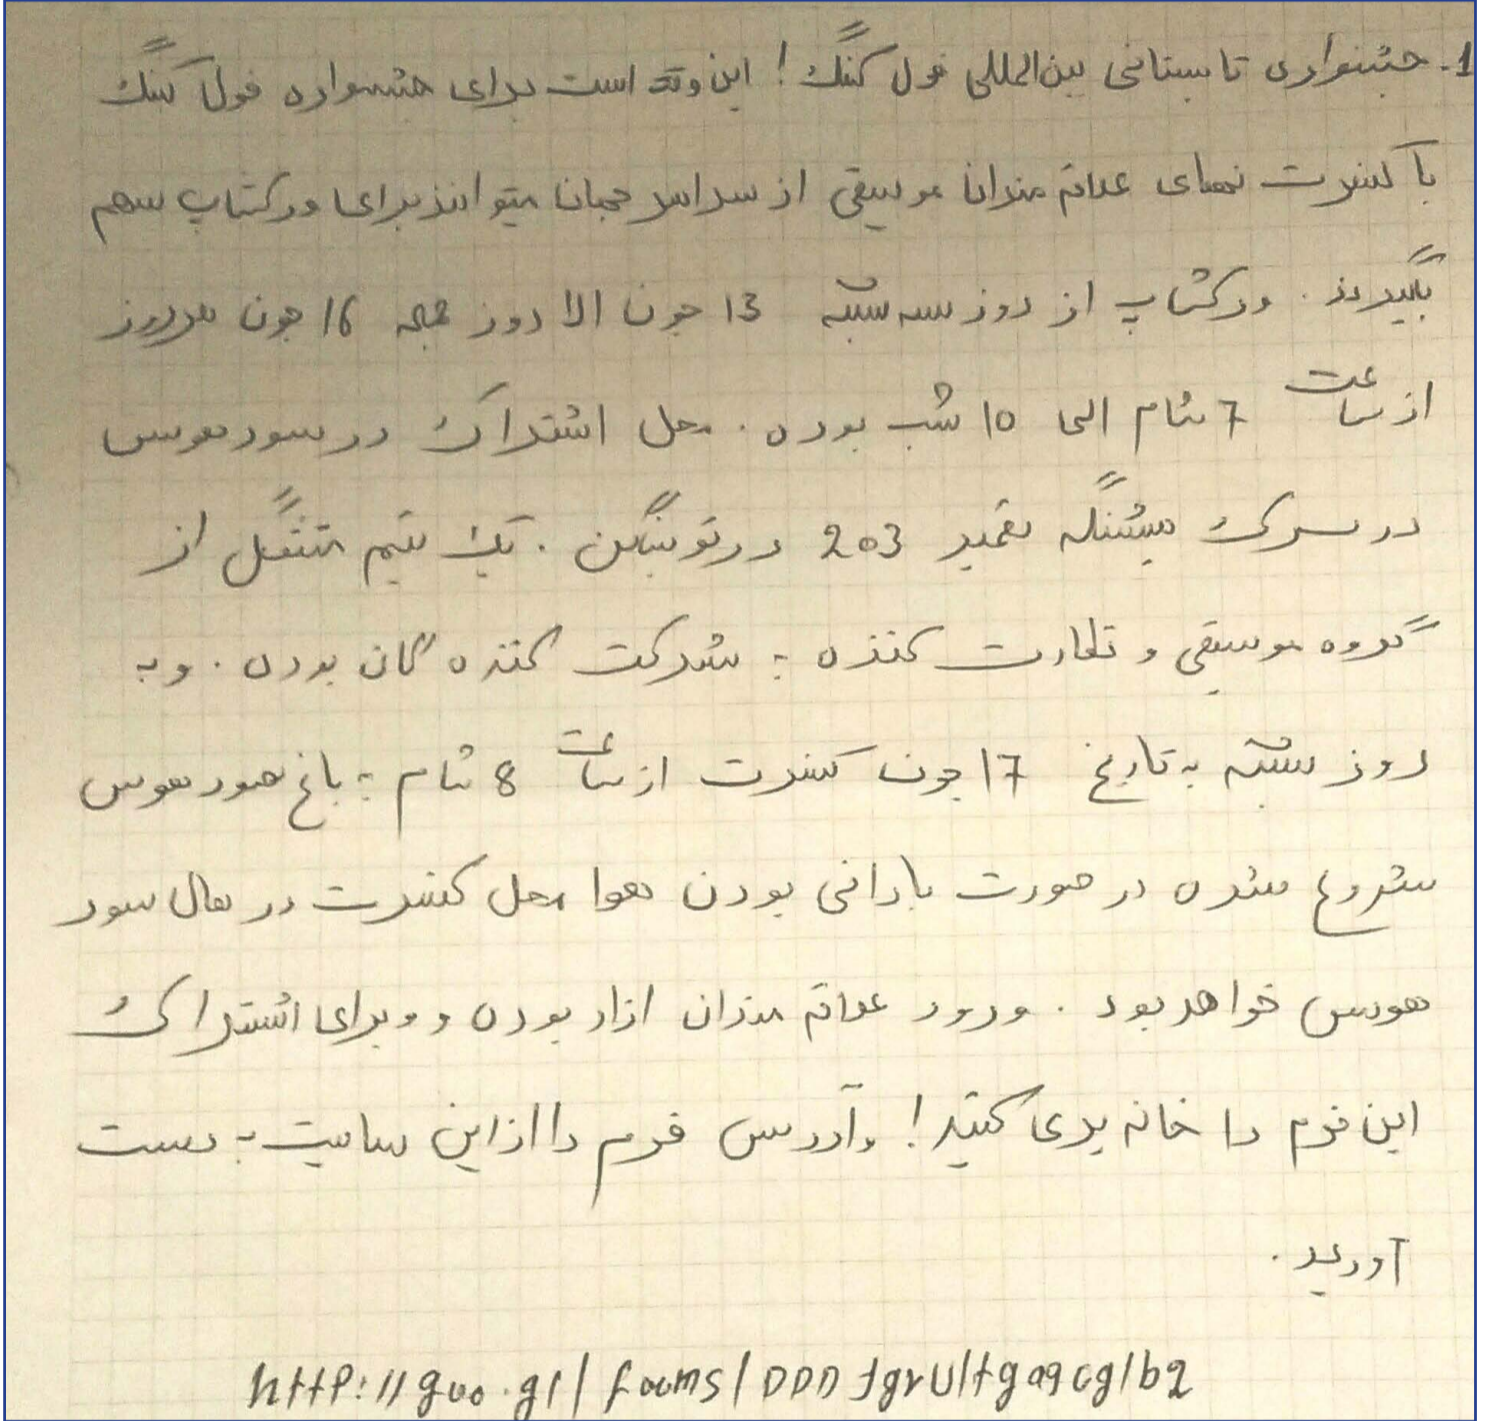 1. جشنواری تابستانی بین‌المللی فول کنگ! این وقت است برای جشنواره فول کنگ
با کنسرت نهای علاقه مندان موسیقی از سراسر جهان میتوانند برای ورکشاپ سهم
بگیرند. ورکشاپ از روز سه شنبه 13 جون الا روز جمعه 16 جون هر روز
از ساعت 7 شام الی 10 شب بوده. محل اشتراک در سود هوس
در سرک میتنگه نمبر 203 در توبنگن. یک تیم متشکل از
گروه موسیقی و نظارت کننده به شرکت کننده گان بوده. و به
روز شنبه به تاریخ 17 جون کنسرت از ساعت 8 شام به باغ صود هوس
شروع شده در صورت بارانی بودن هوا محل کنسرت در هال سود
هوس خواهد بود. ورود علاقه مندان ازاد بوده و و برای اشتراک
این فرم را خانه پری کنید! وآدرس فرم را از این سایت به دست
آورید.
http://goo.gl/